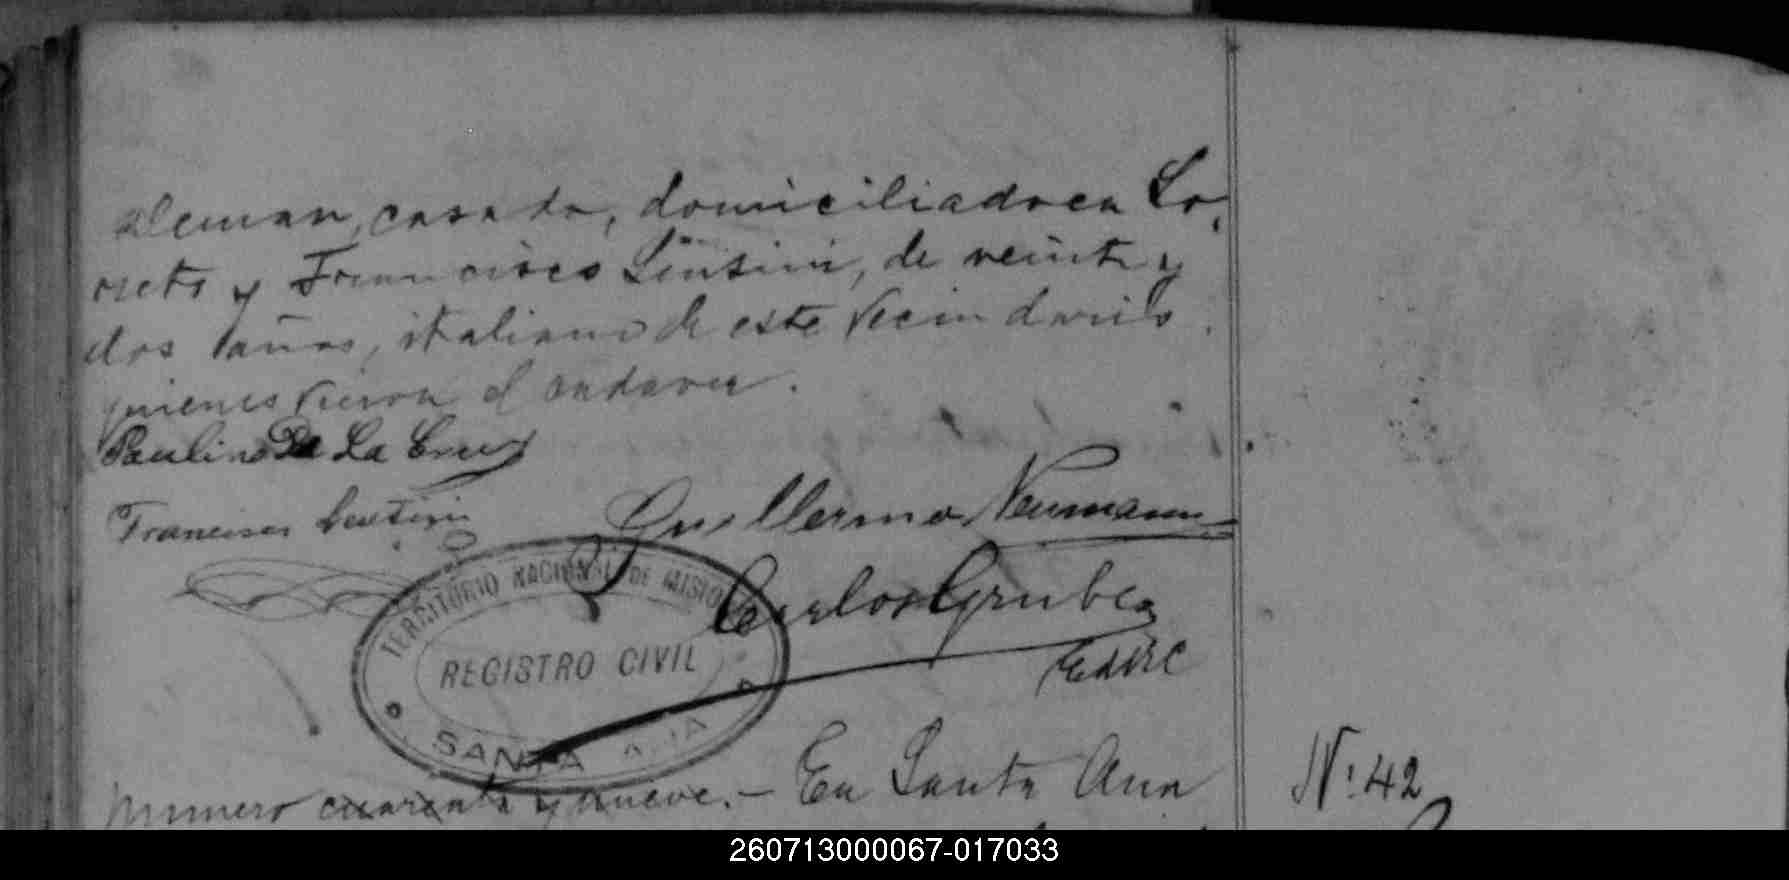 aleman, casado, domiciliado en Lo,
reto y Francisco Lentini, de veinte y
dos años, italiano de este vecindario.
quienes vieron el cadaver.
Paulino De La Cruz
Francisco Lentini
Guillermo Neumann
Carlos Gruber
TERRITORIO NACIONAL DE MISIO
REGISTRO CIVIL
SANTA ANA
Numero cuarenta y nueve. — En Santa Ana
Nº 42
260713000067-017033